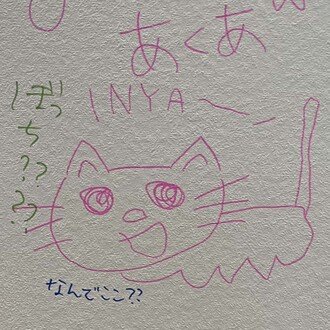 あくあ
INYA〜
ぼっち????
なんでここ??